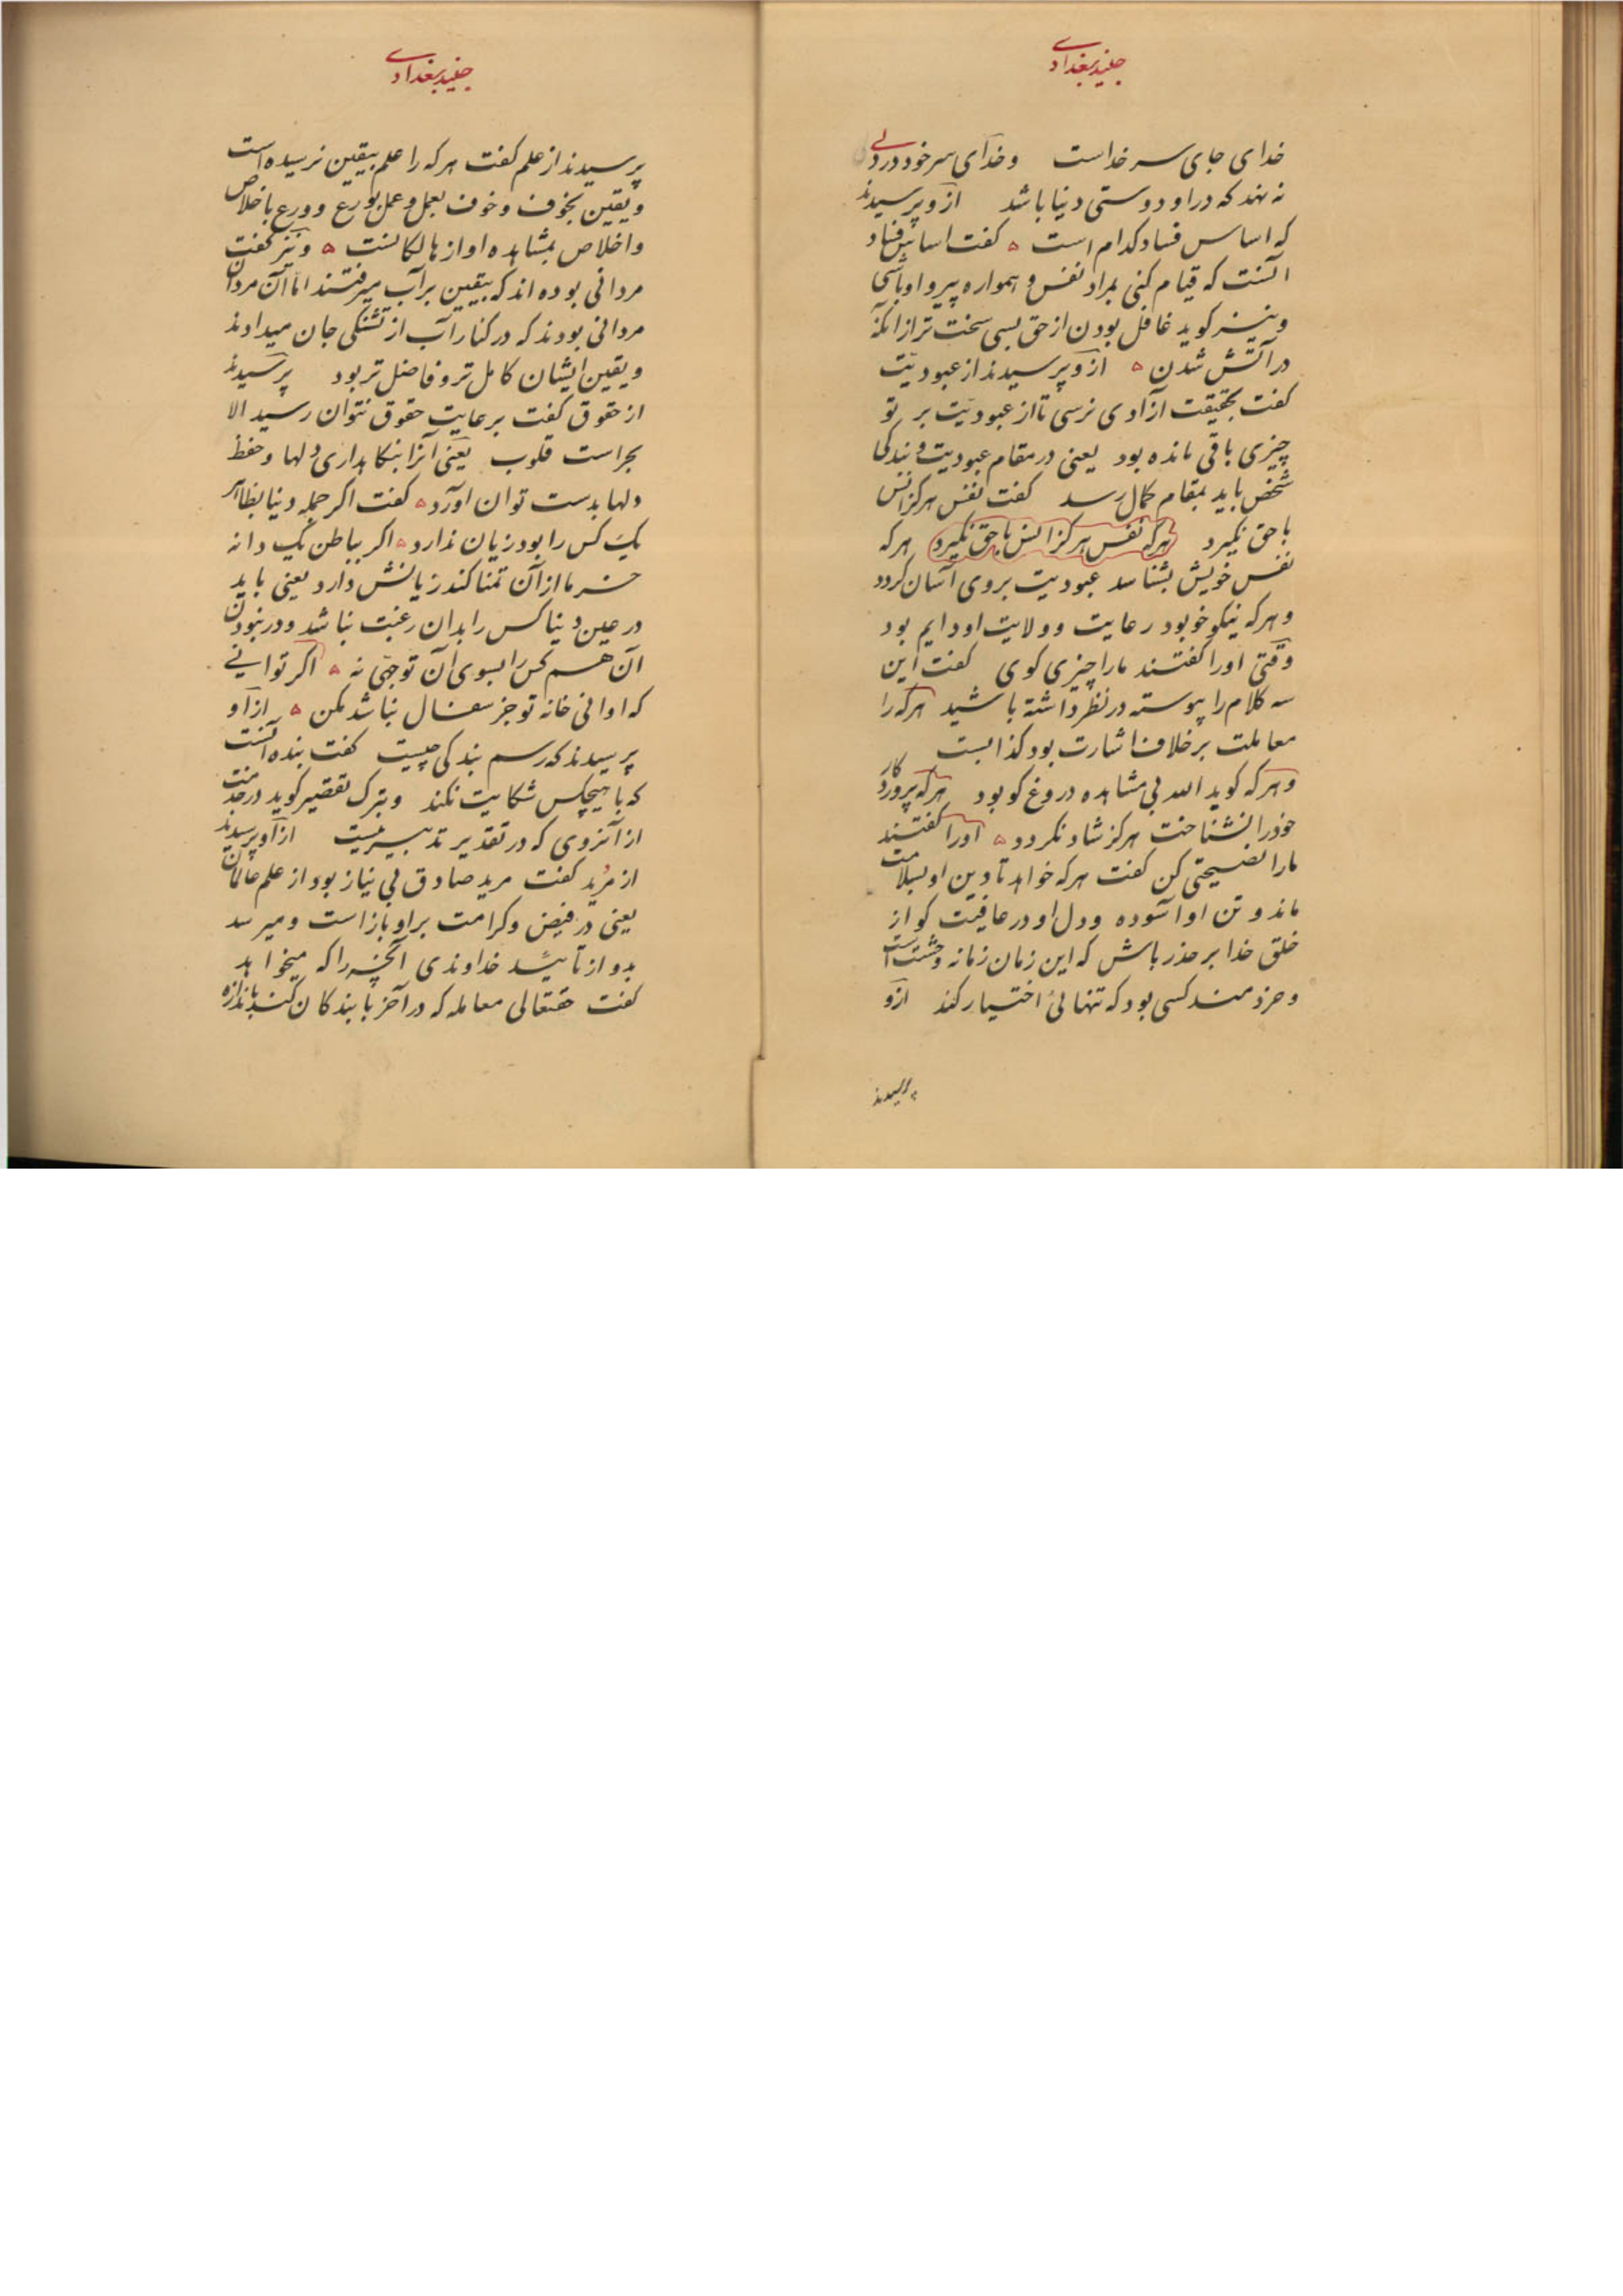 جنید بغدادی
خدای جای سر خداست وخدای سر خود در دلی
نه نهد که در او دوستی دنیا باشد ازو پرسیدند
که اساس فساد کدام است ه کفت اساس فساد
آنست که قیام کنی بمراد نفس و همواره پیرو او باشی
ونیز کوید غافل بودن از حق بسی سخت تر از انکه
در آتش شدن ه ازو پرسیدند از عبودیّت
کفت بحقیقت آزادی نرسی تا از عبودیّت بر تو
چیزی باقی مانده بود یعنی در مقام عبودیت وبندکی
شخص باید بمقام کمال رسد کفت نفس هرکز انس
با حق نکیرد هرکه نفس هرکز انس با حق نکیرد هرکه
نفس خویش بشناسد عبودیت بروی آسان کردد
وهرکه نیکو خو بود رعایت وولایت او دایم بود
وقتی اورا کفتند مارا چیزی کوی کفت این
سه کلام را پیوسته در نظر داشته باشید هرکه را
معاملت بر خلاف اشارت بود کذابست
وهرکه کوید الله بی مشاهده دروغ کو بود هرکه پرورد کار
خودرا نشناخت هرکز شاد نکردد ه اورا کفتند
مارا نصیحتی کن کفت هرکه خواهد تا دین او بسلامت
ماند و تن او آسوده ودل او در عافیت کو از
خلق خدا بر حذر باش که این زمان زمانه وحشت است
وخردمند کسی بود که تنهائی اختیار کند ازو
پرسیدند
جنید بغدادی
پرسیدند از علم کفت هرکه را علم بیقین نرسیده است
ویقین بخوف وخوف بعمل وعمل بورع وورع باخلاص
واخلاص بمشاهده او از هالکانست ه ونیز کفت
مردانی بوده اند که بیقین بر آب میرفتند اما آن مردان
مردانی بودند که در کنار آب از تشنکی جان میدادند
ویقین ایشان کامل تر وفاضل تر بود پرسیدند
از حقوق کفت برعایت حقوق نتوان رسید الا
بحراست قلوب یعنی آنرا بنکاهداری دلها وحفظ
دلها بدست توان آورد ه کفت اکر جمله دنیا بظاهر
یک کس را بود زیان ندارد ه اکر بباطن یک دانه
خرما از آن تمنا کند زیانش دارد یعنی باید
در عین دنیا کس را بدان رغبت نباشد ودر نبودن
آن هم کس را بسوی آن توجهی نه ه اکر توانی
که اوانی خانه تو جز سفال نباشد بکن ه از او
پرسیدند که رسم بندکی چیست کفت بنده آنست
که با هیچکس شکایت نکند وبترک تقصیر کوید در خدمت
از آنروی که در تقدیر تدبیر نیست از او پرسیدند
از مرید کفت مرید صادق بی نیاز بود از علم عالمان
یعنی در فیض وکرامت بر او باز است ومیرسد
بدو از تائید خداوندی آنچه را که میخواهد
کفت حقتعالی معامله که در آخر با بندکان کند باندازه